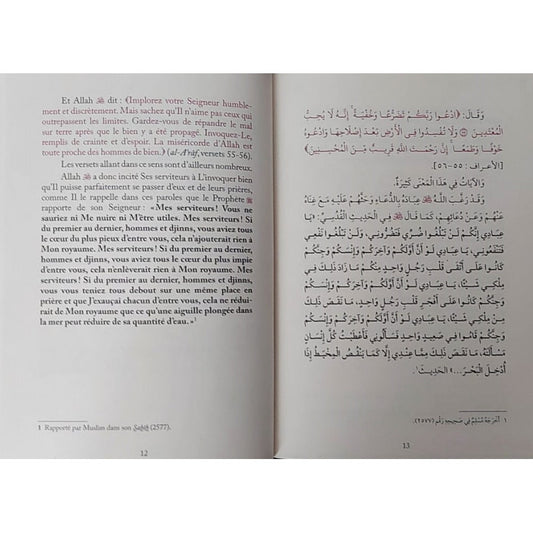 Et Allah ﷻ dit : ⟨Implorez votre Seigneur humble-
ment et discrètement. Mais sachez qu'Il n'aime pas ceux qui
outrepassent les limites. Gardez-vous de répandre le mal
sur terre après que le bien y a été propagé. Invoquez-Le,
remplis de crainte et d'espoir. La miséricorde d'Allah est
toute proche des hommes de bien.⟩ (al-A'râf, versets 55-56).
Les versets allant dans ce sens sont d'ailleurs nombreux.
Allah ﷻ a donc incité Ses serviteurs à L'invoquer bien
qu'Il puisse parfaitement se passer d'eux et de leurs prières,
comme Il le rappelle dans ces paroles que le Prophète ﷺ
rapporte de son Seigneur : « Mes serviteurs ! Vous ne
sauriez ni Me nuire ni M'être utiles. Mes serviteurs ! Si
du premier au dernier, hommes et djinns, vous aviez
tous le cœur du plus pieux d'entre vous, cela n'ajouterait rien à
Mon royaume. Mes serviteurs ! Si du premier au dernier,
hommes et djinns, vous aviez tous le cœur du plus impie
d'entre vous, cela n'enlèverait rien à Mon royaume. Mes
serviteurs ! Si du premier au dernier, hommes et djinns,
vous vous teniez tous debout sur une même place en
prière et que J'exauçai chacun d'entre vous, cela ne rédui-
rait de Mon royaume que ce qu'une aiguille plongée dans
la mer peut réduire de sa quantité d'eau. »¹
1 Rapporté par Muslim dans son Ṣaḥîḥ (2577).
12
وَقَالَ: ﴿ادْعُوا رَبَّكُمْ تَضَرُّعًا وَخُفْيَةً ۚ إِنَّهُ لَا يُحِبُّ
الْمُعْتَدِينَ ۝ وَلَا تُفْسِدُوا فِي الْأَرْضِ بَعْدَ إِصْلَاحِهَا وَادْعُوهُ
خَوْفًا وَطَمَعًا ۚ إِنَّ رَحْمَتَ اللَّهِ قَرِيبٌ مِّنَ الْمُحْسِنِينَ﴾
[الأعراف: ٥٥-٥٦].
وَالآيَاتُ فِي هَذَا الْمَعْنَى كَثِيرَةٌ.
وَقَدْ رَغَّبَ اللَّهُ ﷻ عِبَادَهُ بِالدُّعَاءِ وَحَثَّهُمْ عَلَيْهِ مَعَ غِنَاهُ
عَنْهُمْ وَعَنْ دُعَائِهِمْ، كَمَا قَالَ ﷺ فِي الْحَدِيثِ الْقُدْسِيِّ: «يَا
عِبَادِي إِنَّكُمْ لَنْ تَبْلُغُوا ضَرِّي فَتَضُرُّونِي، وَلَنْ تَبْلُغُوا نَفْعِي
فَتَنْفَعُونِي، يَا عِبَادِي لَوْ أَنَّ أَوَّلَكُمْ وَآخِرَكُمْ وَإِنْسَكُمْ وَجِنَّكُمْ
كَانُوا عَلَى أَتْقَى قَلْبِ رَجُلٍ وَاحِدٍ مِنْكُمْ مَا زَادَ ذَلِكَ فِي
مُلْكِي شَيْئًا، يَا عِبَادِي لَوْ أَنَّ أَوَّلَكُمْ وَآخِرَكُمْ وَإِنْسَكُمْ وَجِنَّكُمْ
كَانُوا عَلَى أَفْجَرِ قَلْبِ رَجُلٍ وَاحِدٍ، مَا نَقَصَ ذَلِكَ
مِنْ مُلْكِي شَيْئًا، يَا عِبَادِي لَوْ أَنَّ أَوَّلَكُمْ وَآخِرَكُمْ وَإِنْسَكُمْ
وَجِنَّكُمْ قَامُوا فِي صَعِيدٍ وَاحِدٍ فَسَأَلُونِي فَأَعْطَيْتُ كُلَّ إِنْسَانٍ
مَسْأَلَتَهُ، مَا نَقَصَ ذَلِكَ مِمَّا عِنْدِي إِلَّا كَمَا يَنْقُصُ الْمِخْيَطُ إِذَا
أُدْخِلَ الْبَحْرَ...» الْحَدِيثَ.¹
١ أَخْرَجَهُ مُسْلِمٌ فِي صَحِيحِهِ رَقْم (٢٥٧٧).
13